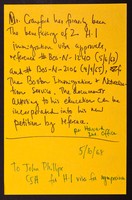 Dr. Crawford has previously been
the beneficiary of 2 H-1
Immigration visa approvals,
reference # Bos-N-1540 (5/6/62)
and # Bos-N-2006 (4/9/65), of
the Boston Immigration & Naturalization
Service. The documents
attesting to his education can be
incorporated into his new
petition by reference.
per Harvard
Int. Office
5/21/69
To John Phillips
CFA for H-1 visa for